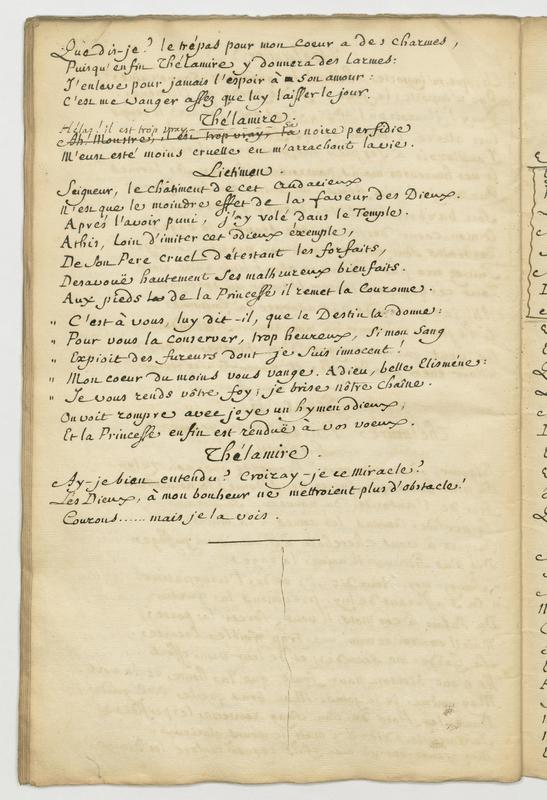 Que dis-je? le trépas pour mon coeur a des charmes,
Puisqu'enfin Thélamire y donnera des larmes:
J'enleve pour jamais l'espoir à son amour:
C'est me vanger assez que luy laisser le jour.
Thélamire.
Hélas! il est trop vray,
Ah! Monstre, il est trop vray, ta noire perfidie
M'eust esté moins cruelle en m'arrachant la vie.
Lictimen.
Seigneur, le châtiment de cet Audacieux
N'est que le moindre effet de la faveur des Dieux.
Aprés l'avoir puni, j'ay volé dans le Temple.
Athis, loin d'imiter cet odieux exemple,
De son Pere cruel détestant les forfaits,
Desavouë hautement ses malheureux bienfaits.
Aux pieds de la Princesse il remet la Couronne.
" C'est à vous, luy dit-il, que le Destin la donne:
" Pour vous la conserver, trop heureux, si mon sang
" Expioit des fureurs dont je suis innocent!
" Mon coeur du moins vous vange. Adieu, belle Elisméne:
" Je vous rends vôtre foy; je brise nôtre chaîne.
On voit rompre avec joye un hymen odieux,
Et la Princesse enfin est renduë à vos voeux.
Thélamire.
Ay-je bien entendu? Croiray-je ce miracle?
Les Dieux, à mon bonheur ne mettroient plus d'obstacle!
Courons...... mais je la vois.